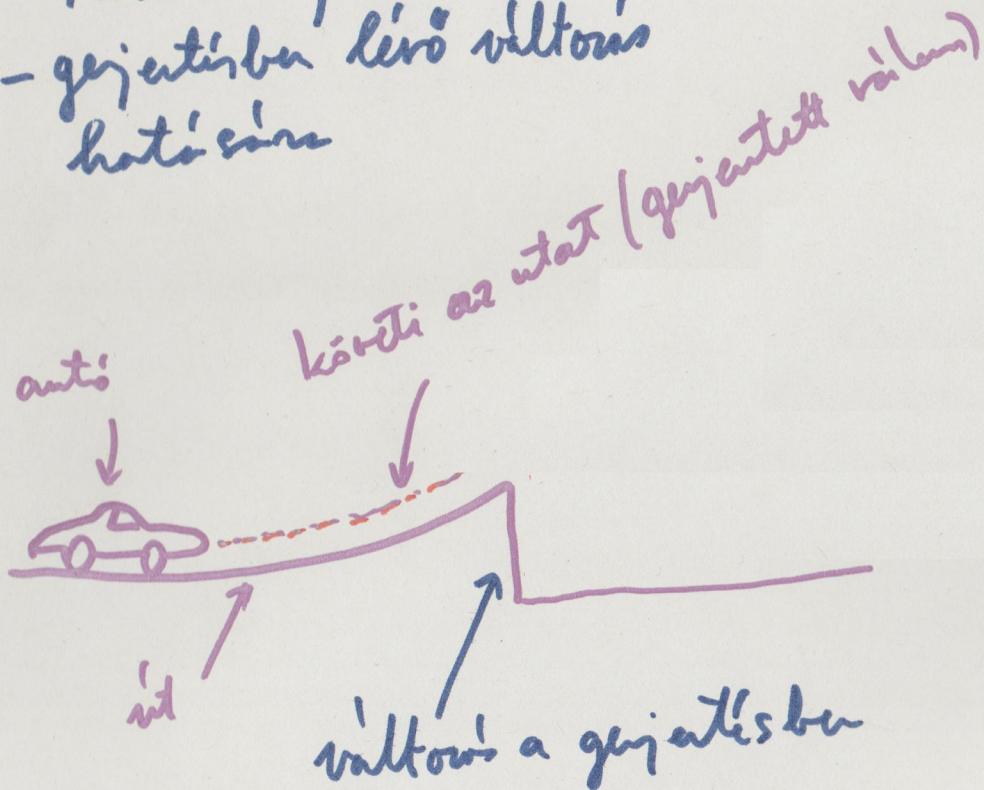 - gerjentésben lévő változás
hatására
követi az utat (gerjentett válasz)
autó
út
változás a gerjentésben